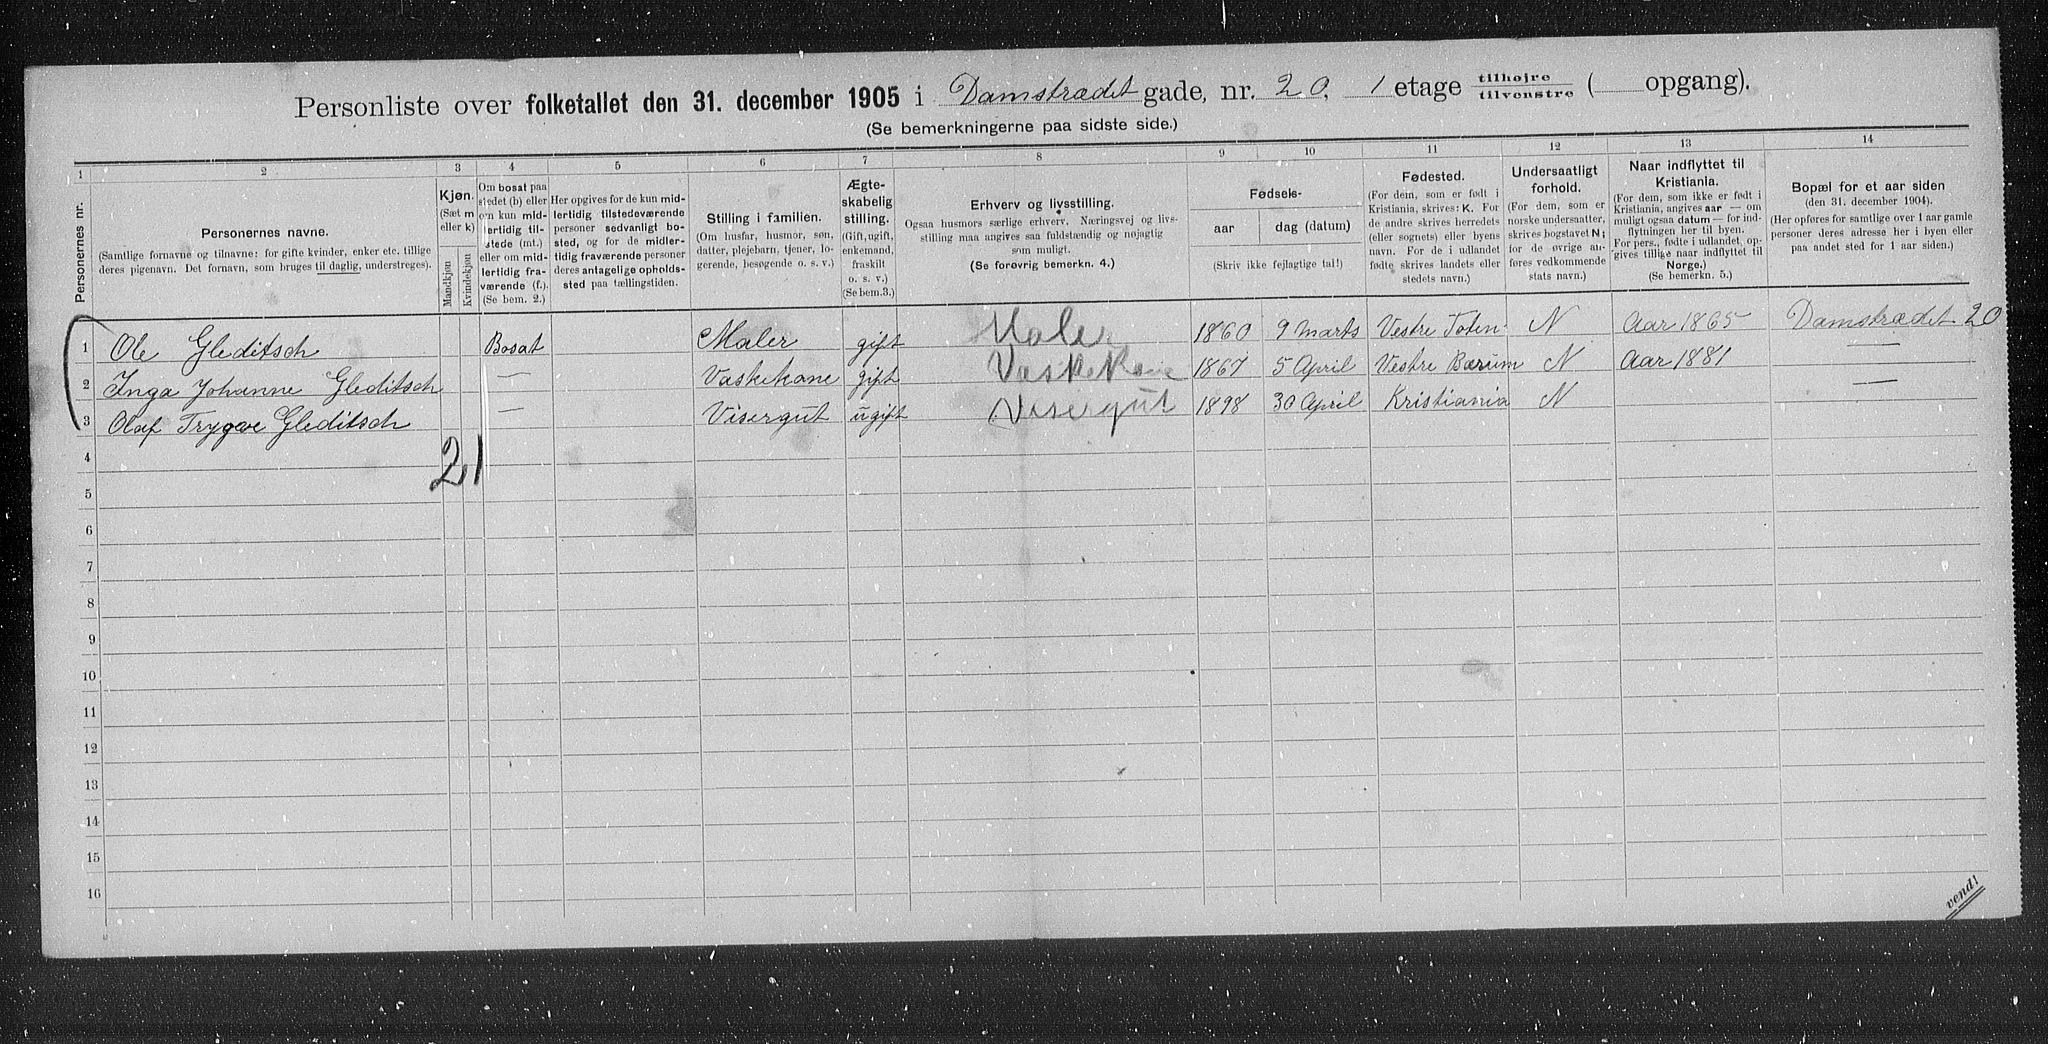 Personliste over folketallet den 31. december 1905 i Damstrædet gade, nr. 20, 1 etage tilhøjre / tilvenstre ( opgang).
(Se bemerkningerne paa sidste side.)
1 2 3 4 5 6 7 8 9 10 11 12 13 14
Personernes nr.
Personernes navne.
(Samtlige fornavne og tilnavne: for gifte kvinder, enker etc. tillige
deres pigenavn. Det fornavn, som bruges til daglig, understreges).
Kjøn.
(Sæt m
eller k)
Mandkjøn
Kvindekjøn
Om bosat paa
stedet (b) eller
om kun mid-
lertidig til-
stede (mt.)
eller om mid-
lertidig fra-
værende (f.).
(Se bem. 2.)
Her opgives for de kun mid-
lertidig tilstedeværende
personer sedvanlig bo-
sted, og for de midler-
tidig fraværende personer
deres antagelige opholds-
sted paa tællingstiden.
Stilling i familien.
(Om husfar, husmor, søn,
datter, plejebarn, tjener, lo-
gerende, besøgende o. s. v.)
Ægte-
skabelig
stilling.
(Gift, ugift,
enkemand,
fraskilt
o. s. v.)
(Se bem.3.)
Erhverv og livsstilling.
Ogsaa husmors særlige erhverv. Næringsvej og livs-
stilling maa angives saa fuldstændig og nøjagtig
som muligt.
(Se forøvrig bemerkn. 4.)
Fødsels-
aar dag (datum)
(Skriv ikke fejlagtige tal!)
Fødested.
(For dem, som er født i
Kristiania, skrives: K. For
de andre skrives herredets
(eller sognets) eller byens
navn. For de i udlandet
fødte skrives landets eller
stedets navn.)
Undersaatligt
forhold.
(For dem, som er
norske undersaatter,
skrives bogstavet N;
for de øvrige an-
føres vedkommende
stats navn.)
Naar indflyttet til
Kristiania.
(For dem, som ikke er født i
Kristiania, angives aar — om
muligt ogsaa datum — for ind-
flytningen her til byen.
For pers., fødte i udlandet, op-
gives tillige naar indflyttet til
Norge.)
(Se bemerkn. 5.)
Bopæl for et aar siden
(den 31. december 1904).
(Her opføres for samtlige over 1 aar gamle
personer deres adresse her i byen eller
paa andet sted for 1 aar siden.)
1 Ole Gleditsch Bosat Maler gift Maler 1860 9 Marts Vestre Toten N Aar 1865 Damstrædet 20
2 Inga Johanne Gleditsch — Vaskekone gift Vaskekone 1867 5 April Vestre Bærum N Aar 1881 —
3 Olaf Trygve Gleditsch — Visergut ugift Visergut 1898 30 April Kristiania N —
2,1
4
5
6
7
8
9
10
11
12
13
14
15
16
vend!